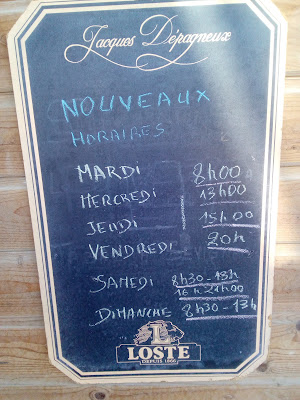 Jacques Dépagneux
NOUVEAUX
HORAIRES
MARDI 8h00
MERCREDI 13h00
JEUDI 15h00
VENDREDI 20h
SAMEDI 8h30-13h
16h 21h00
DIMANCHE 8h30-13h
L
LOSTE
DEPUIS 1866